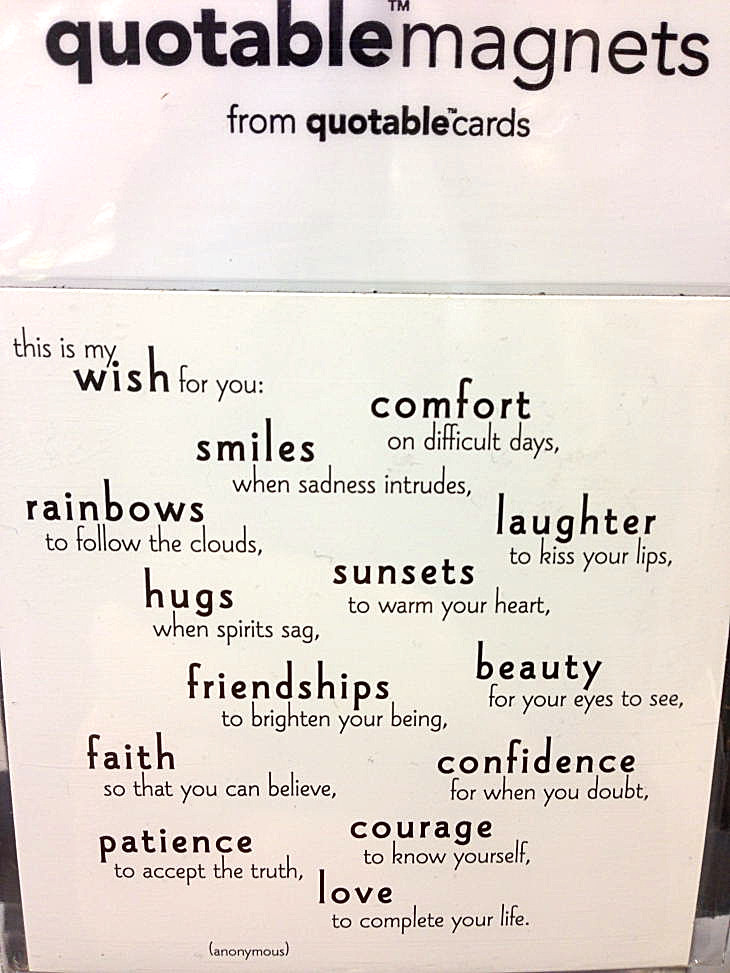 quotable™magnets
from quotable™cards
this is my
wish for you:
comfort
on difficult days,
smiles
when sadness intrudes,
rainbows
to follow the clouds,
laughter
to kiss your lips,
sunsets
to warm your heart,
hugs
when spirits sag,
beauty
for your eyes to see,
friendships
to brighten your being,
faith
so that you can believe,
confidence
for when you doubt,
courage
to know yourself,
patience
to accept the truth,
love
to complete your life.
(anonymous)